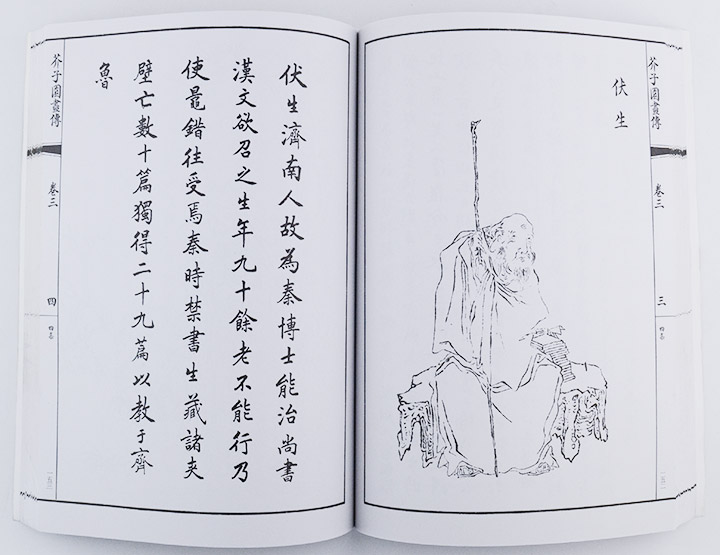 芥子園畫傳
卷三
三
四集
伏生
伏生濟南人故為秦博士能治尚書
漢文欲召之生年九十餘老不能行乃
使鼂錯往受焉秦時禁書生藏諸夾
壁亡數十篇獨得二十九篇以教于齊
魯
芥子園畫傳
卷三
四
四集